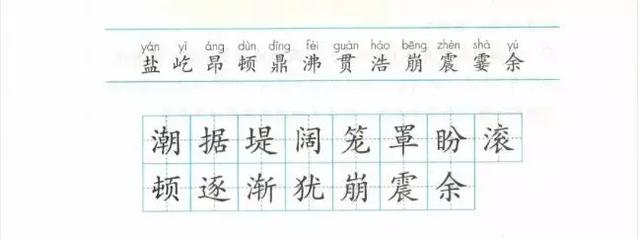 yán yì áng dùn dǐng fèi guàn hào bēng zhèn shà yú
盐 屹 昂 顿 鼎 沸 贯 浩 崩 震 霎 余
潮 据 堤 阔 笼 罩 盼 滚
顿 逐 渐 犹 崩 震 余